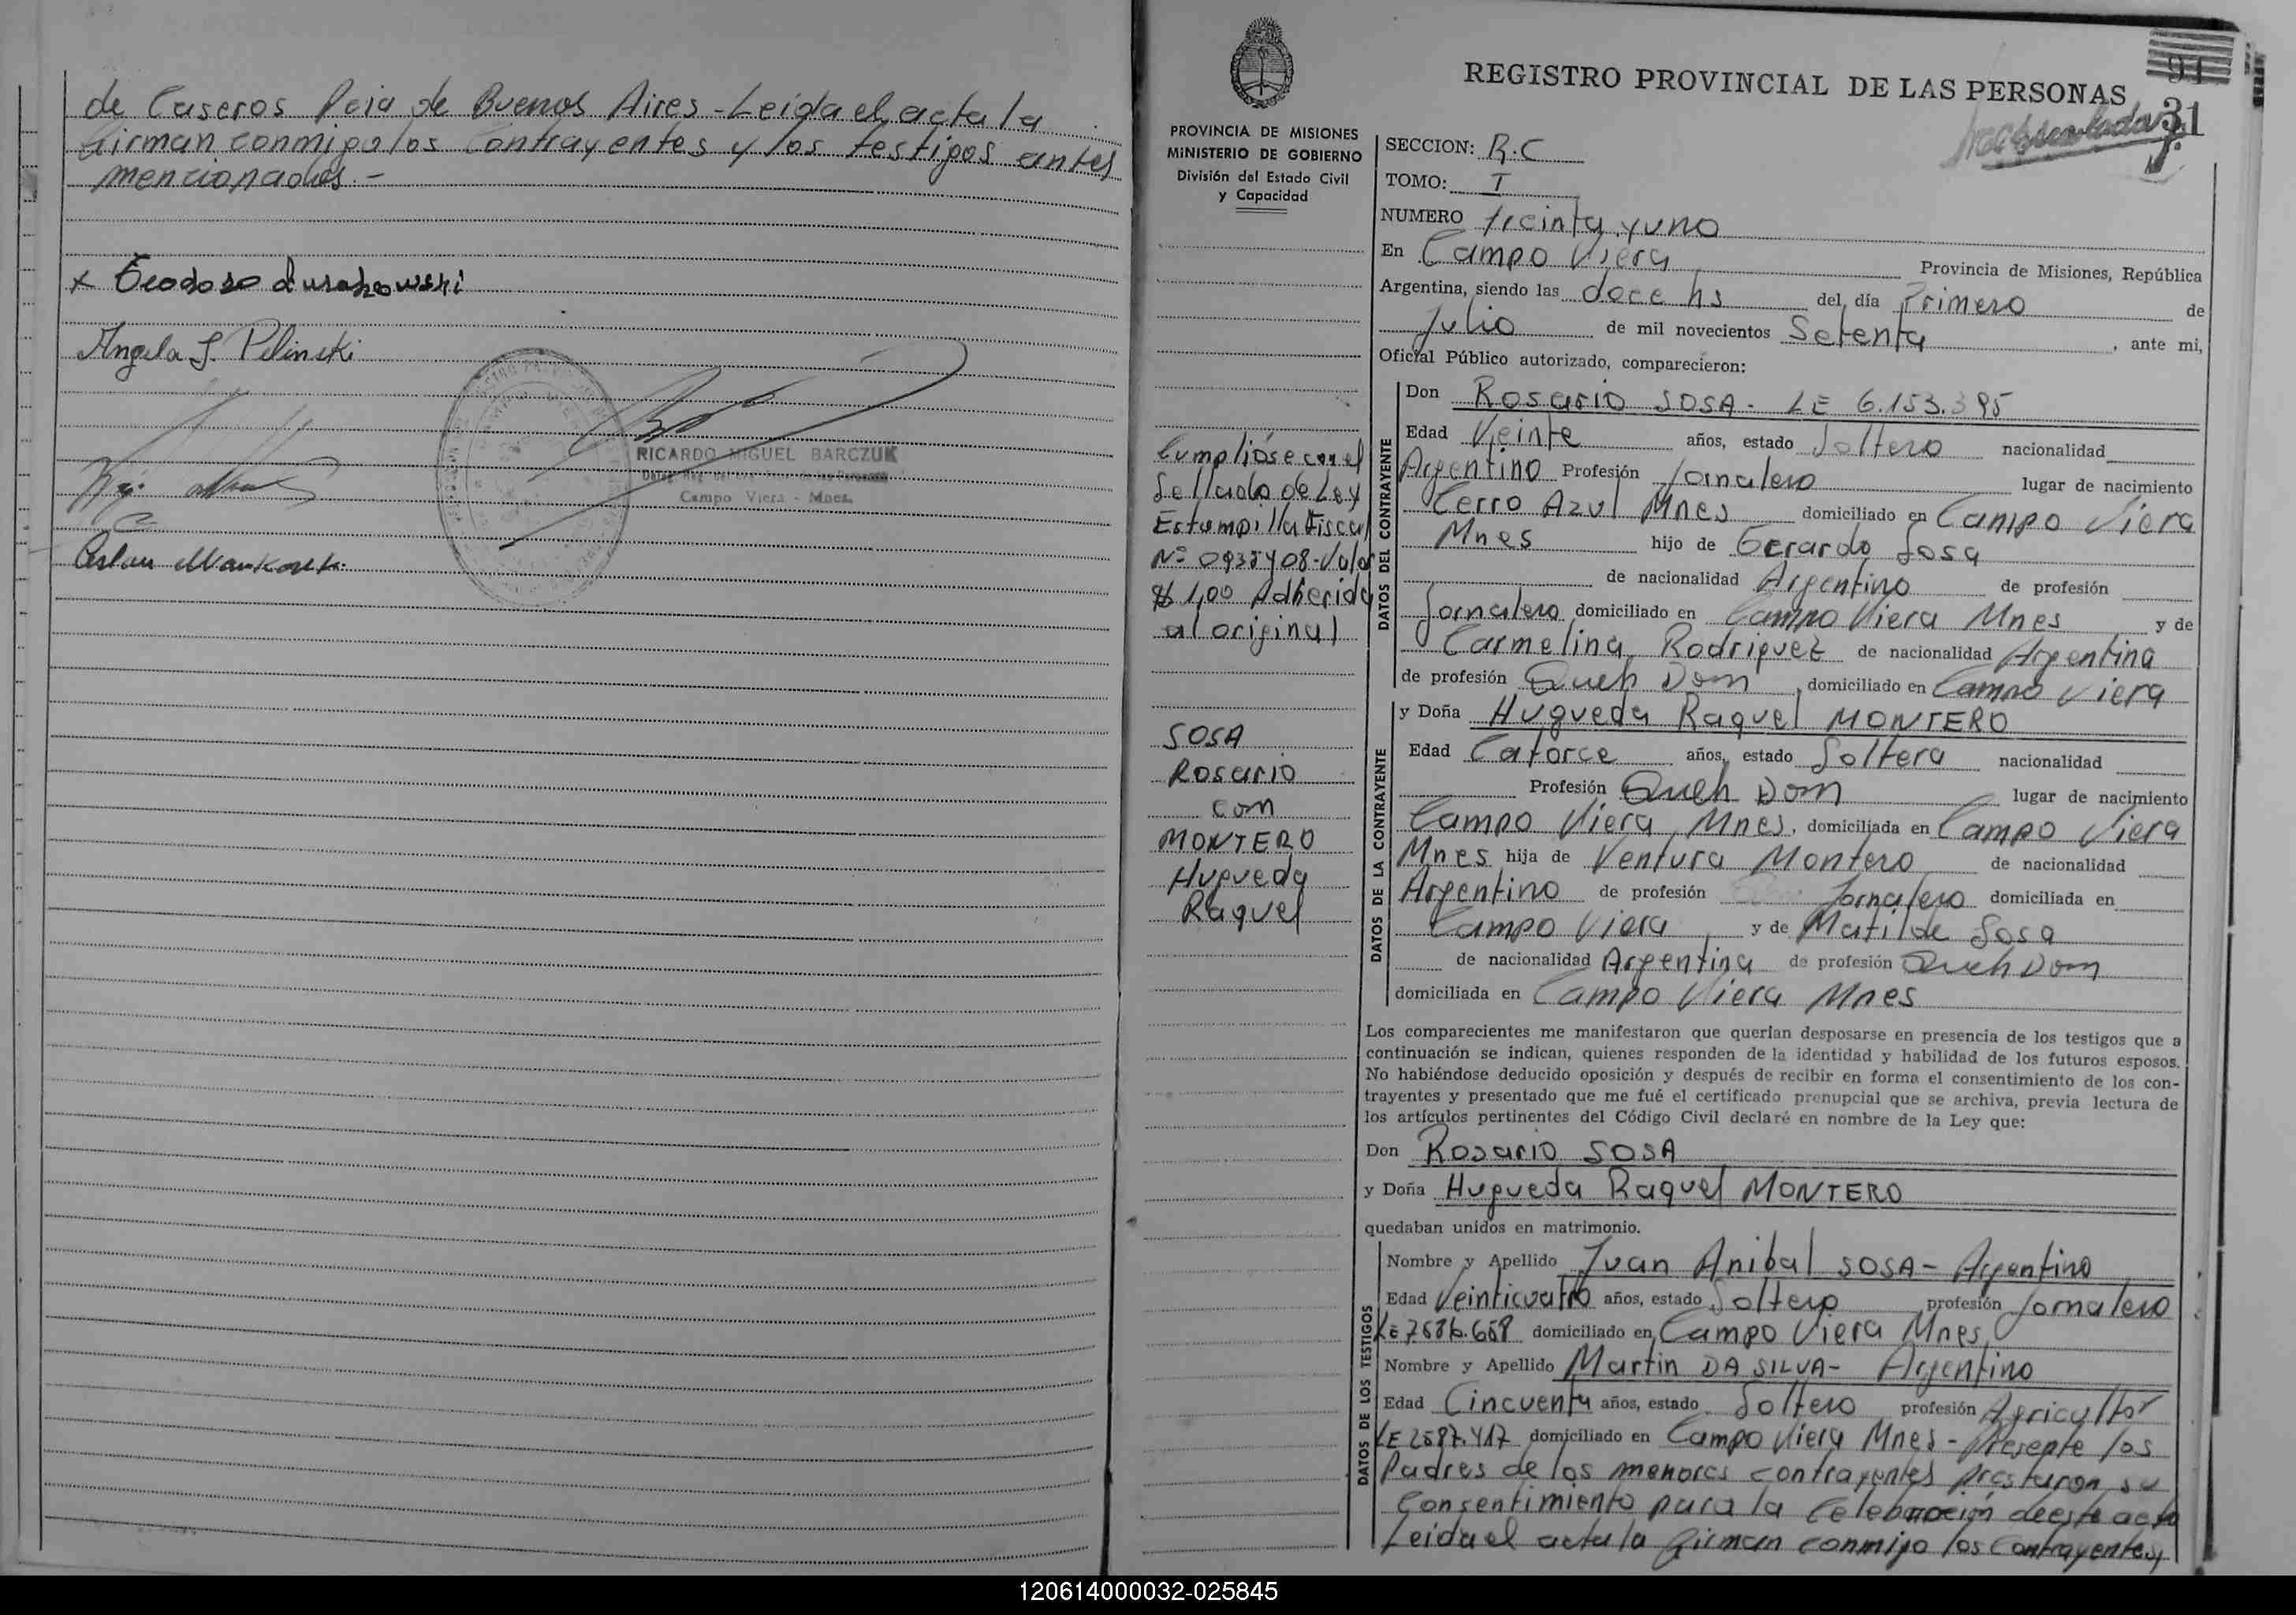 de Caseros Pcia de Buenos Aires - Leída el acta la
firman conmigo los contrayentes y los testigos antes
mencionados. -
x Teodoro
Angela S. Pelinski
RICARDO MIGUEL BARCZUK
Campo Viera - Mnes.
REGISTRO PROVINCIAL DE LAS PERSONAS
91
31
PROVINCIA DE MISIONES
MINISTERIO DE GOBIERNO
División del Estado Civil
y Capacidad
SECCION: R.C
TOMO: I
NUMERO treinta y uno
En Campo Viera Provincia de Misiones, República
Argentina, siendo las doce hs del día Primero de
Julio de mil novecientos Setenta, ante mi,
Oficial Público autorizado, comparecieron:
DATOS DEL CONTRAYENTE
Don Rosario SOSA - LE 6.153.395
Edad Veinte años, estado Soltero nacionalidad
Argentino Profesión Jornalero lugar de nacimiento
Cerro Azul Mnes domiciliado en Campo Viera
Mnes hijo de Gerardo Sosa
de nacionalidad Argentino de profesión
Jornalero domiciliado en Campo Viera Mnes y de
Carmelina Rodriguez de nacionalidad Argentina
de profesión Queh Dom, domiciliado en Campo Viera
Cumplióse con el
Sellado de Ley
Estampilla Fiscal
Nº 0935408-Valor
$ 1,00 Adherida
al original
SOSA
Rosario
con
MONTERO
Hugueda
Raquel
DATOS DE LA CONTRAYENTE
y Doña Hugueda Raquel MONTERO
Edad Catorce años, estado Soltera nacionalidad
Profesión Queh Dom lugar de nacimiento
Campo Viera, Mnes, domiciliada en Campo Viera
Mnes hija de Ventura Montero de nacionalidad
Argentino de profesión Jornalero domiciliada en
Campo Viera y de Matilde Sosa
de nacionalidad Argentina de profesión Queh Dom
domiciliada en Campo Viera Mnes
Los comparecientes me manifestaron que querían desposarse en presencia de los testigos que a
continuación se indican, quienes responden de la identidad y habilidad de los futuros esposos.
No habiéndose deducido oposición y después de recibir en forma el consentimiento de los con-
trayentes y presentado que me fué el certificado prenupcial que se archiva, previa lectura de
los artículos pertinentes del Código Civil declaré en nombre de la Ley que:
Don Rosario SOSA
y Doña Hugueda Raquel MONTERO
quedaban unidos en matrimonio.
DATOS DE LOS TESTIGOS
Nombre y Apellido Juan Anibal SOSA - Argentino
Edad Veinticuatro años, estado Soltero profesión Jornalero
LE 7586.658 domiciliado en Campo Viera Mnes
Nombre y Apellido Martin DA SILVA - Argentino
Edad Cincuenta años, estado Soltero profesión Agricultor
LE 2587.417 domiciliado en Campo Viera Mnes - Presente los
Padres de los menores contrayentes prestaron su
Consentimiento para la celebración de este acto
Leida el acta la firman conmigo los Contrayentes y
120614000032-025845